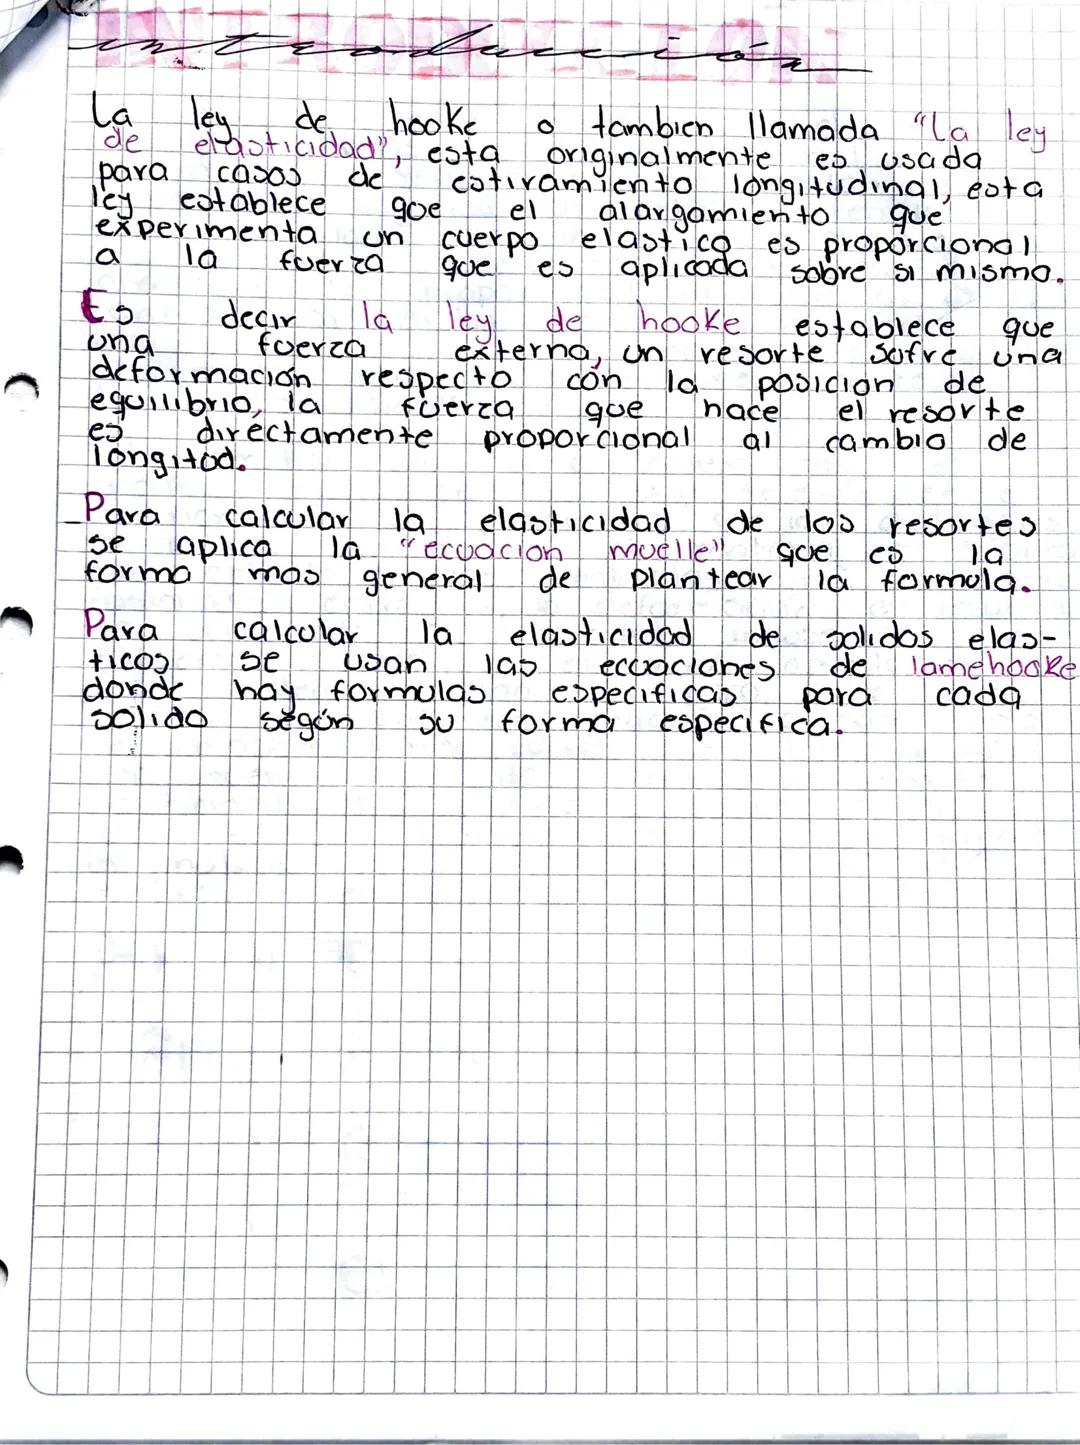 introducción
La ley de hooke o tambien llamada "La ley
de elasticidad", esta originalmente es usada
para casos de estiramiento longitudinal, esta
ley establece que el alargamiento que
experimenta un cuerpo elastico es proporcional
a la fuerza que es aplicada sobre si mismo.
Es decir la ley de hooke establece que
una fuerza externa, un resorte sufre una
deformación respecto con la posicion de
equilibrio, la fuerza que hace el resorte
es directamente proporcional al cambio de
longitud.
Para calcular la elasticidad de los resortes
se aplica la "ecuacion muelle" que es la
forma mas general de plantear la formula.
Para calcular la elasticidad de solidos elas-
ticos se usan las ecuaciones de lamehooke
donde hay formulas especificas para cada
solido según su forma especifica.